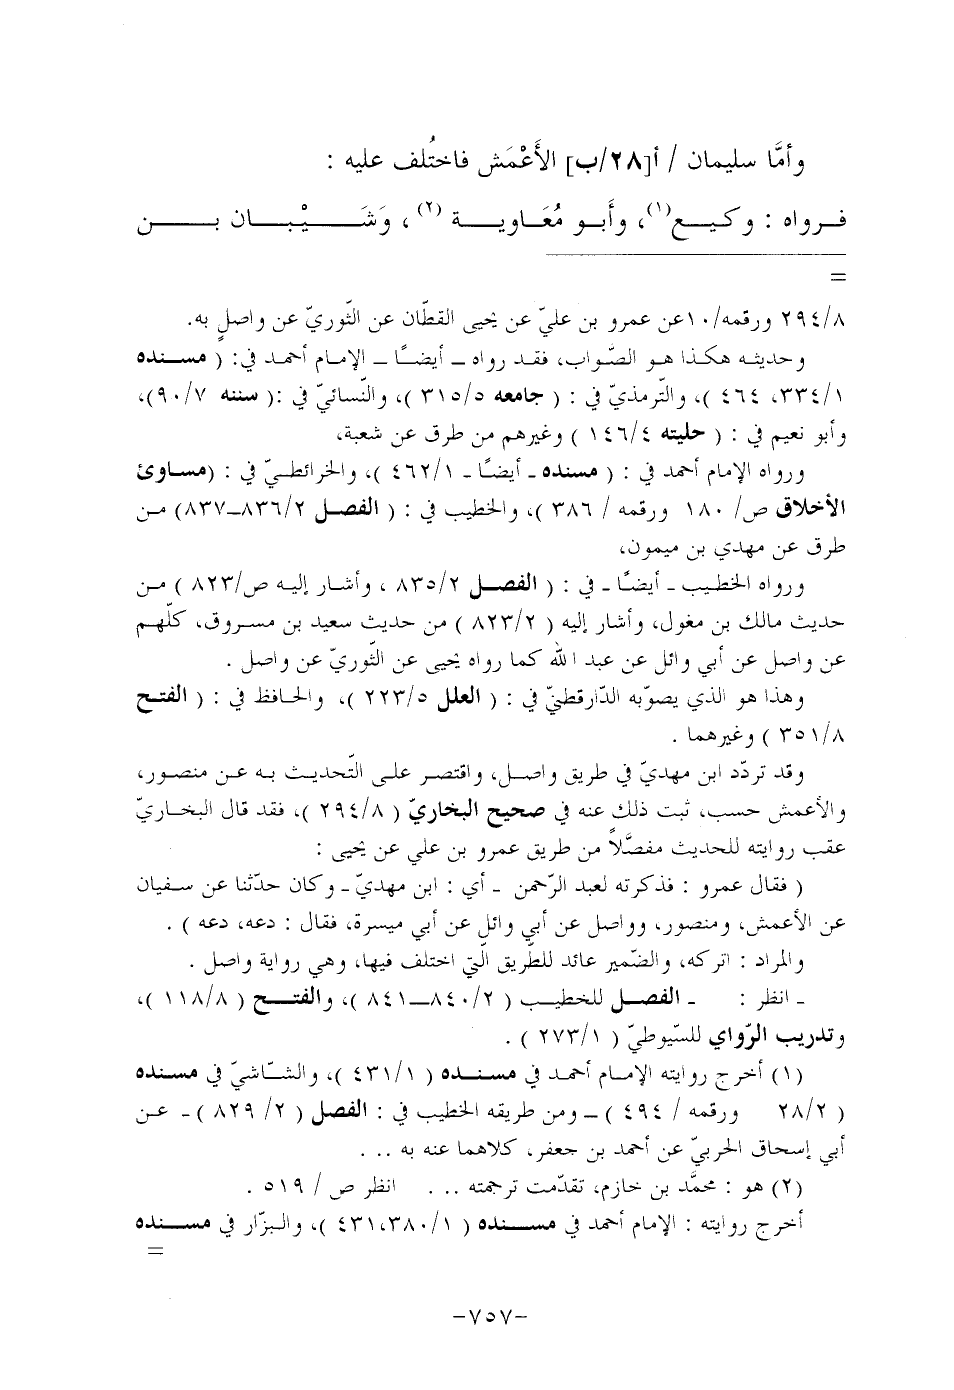 وأمَّا سليمان / أ[٢٨/ب] الأَعْمَش فاختُلف عليه :
فـرواه : وكيـع(١)، وأبـو مُعَـاويـة (٢) ، وَشَـيْـبَـان بـن
=
٢٩٤/٨ ورقمه/١٠عن عمرو بن عليّ عن يحيى القطّان عن الثّوريّ عن واصلٍ به.
وحديثـه هكـذا هـو الصّـواب، فقـد رواه ـ أيضًـا ـ الإمـام أحمـد في: ( مسـنده
٣٣٤/١، ٤٦٤ )، والتّرمذيّ في : ( جامعه ٣١٥/٥ )، والنّسائيّ في :( سننه ٩٠/٧)،
وأبو نعيم في : ( حليته ١٤٦/٤ ) وغيرهم من طرق عن شعبة،
ورواه الإمام أحمد في : ( مسنده ـ أيضًـا ـ ٤٦٢/١ )، والخرائطـيّ في : (مسـاوئ
الأخلاق ص/ ١٨٠ ورقمه / ٣٨٦ )، والخطيب في : ( الفصل ٨٣٦/٢ـ٨٣٧) مـن
طرق عن مهدي بن ميمون،
ورواه الخطيـب ـ أيضًـا ـ في : ( الفصـل ٨٣٥/٢ ، وأشـار إليـه ص/٨٢٣ ) مـن
حديث مالك بن مغول، وأشار إليه ( ٨٢٣/٢ ) من حديث سعيد بن مسـروق، كلّهـم
عن واصل عن أبي وائل عن عبد الله كما رواه يحيى عن الثّوريّ عن واصل .
وهذا هو الذي يصوّبه الدّارقطنيّ في : ( العلل ٢٢٣/٥ )، والحـافظ في : ( الفتـح
٣٥١/٨ ) وغيرهما .
وقد تردّد ابن مهديّ في طريق واصـل، واقتصـر علـى التّحديـث بـه عـن منصـور،
والأعمش حسب، ثبت ذلك عنه في صحيح البخاريّ ( ٢٩٤/٨ )، فقد قال البخـاريّ
عقب روايته للحديث مفصّلاً من طريق عمرو بن علي عن يحيى :
( فقال عمرو : فذكرته لعبد الرّحمن ـ أي : ابن مهديّ ـ وكان حدّثنا عن سـفيان
عن الأعمش، ومنصور، وواصل عن أبي وائل عن أبي ميسرة، فقال : دعه، دعه ) .
والمراد : اتركه، والضّمير عائد للطّريق الّتي اختلف فيها، وهي رواية واصل .
ـ انظر : ـ الفصـل للخطيـب ( ٨٤٠/٢ـ٨٤١ )، والفتـح ( ١١٨/٨ )،
وتدريب الرّواي للسّيوطيّ ( ٢٧٣/١ ) .
(١) أخرج روايته الإمـام أحمـد في مسـنده ( ٤٣١/١ )، والشّـاشيّ في مسـنده
( ٢٨/٢ ورقمه / ٤٩٤ ) ـ ومن طريقه الخطيب في : الفصل ( ٢/ ٨٢٩ ) ـ عـن
أبي إسحاق الحربيّ عن أحمد بن جعفر، كلاهما عنه به .. .
(٢) هو : محمَّد بن خازم، تقدّمت ترجمته .. . انظر ص / ٥١٩ .
أخرج روايته : الإمام أحمد في مسـنده ( ٤٣١،٣٨٠/١ )، والـبزّار في مسـنده
=
-٧٥٧-